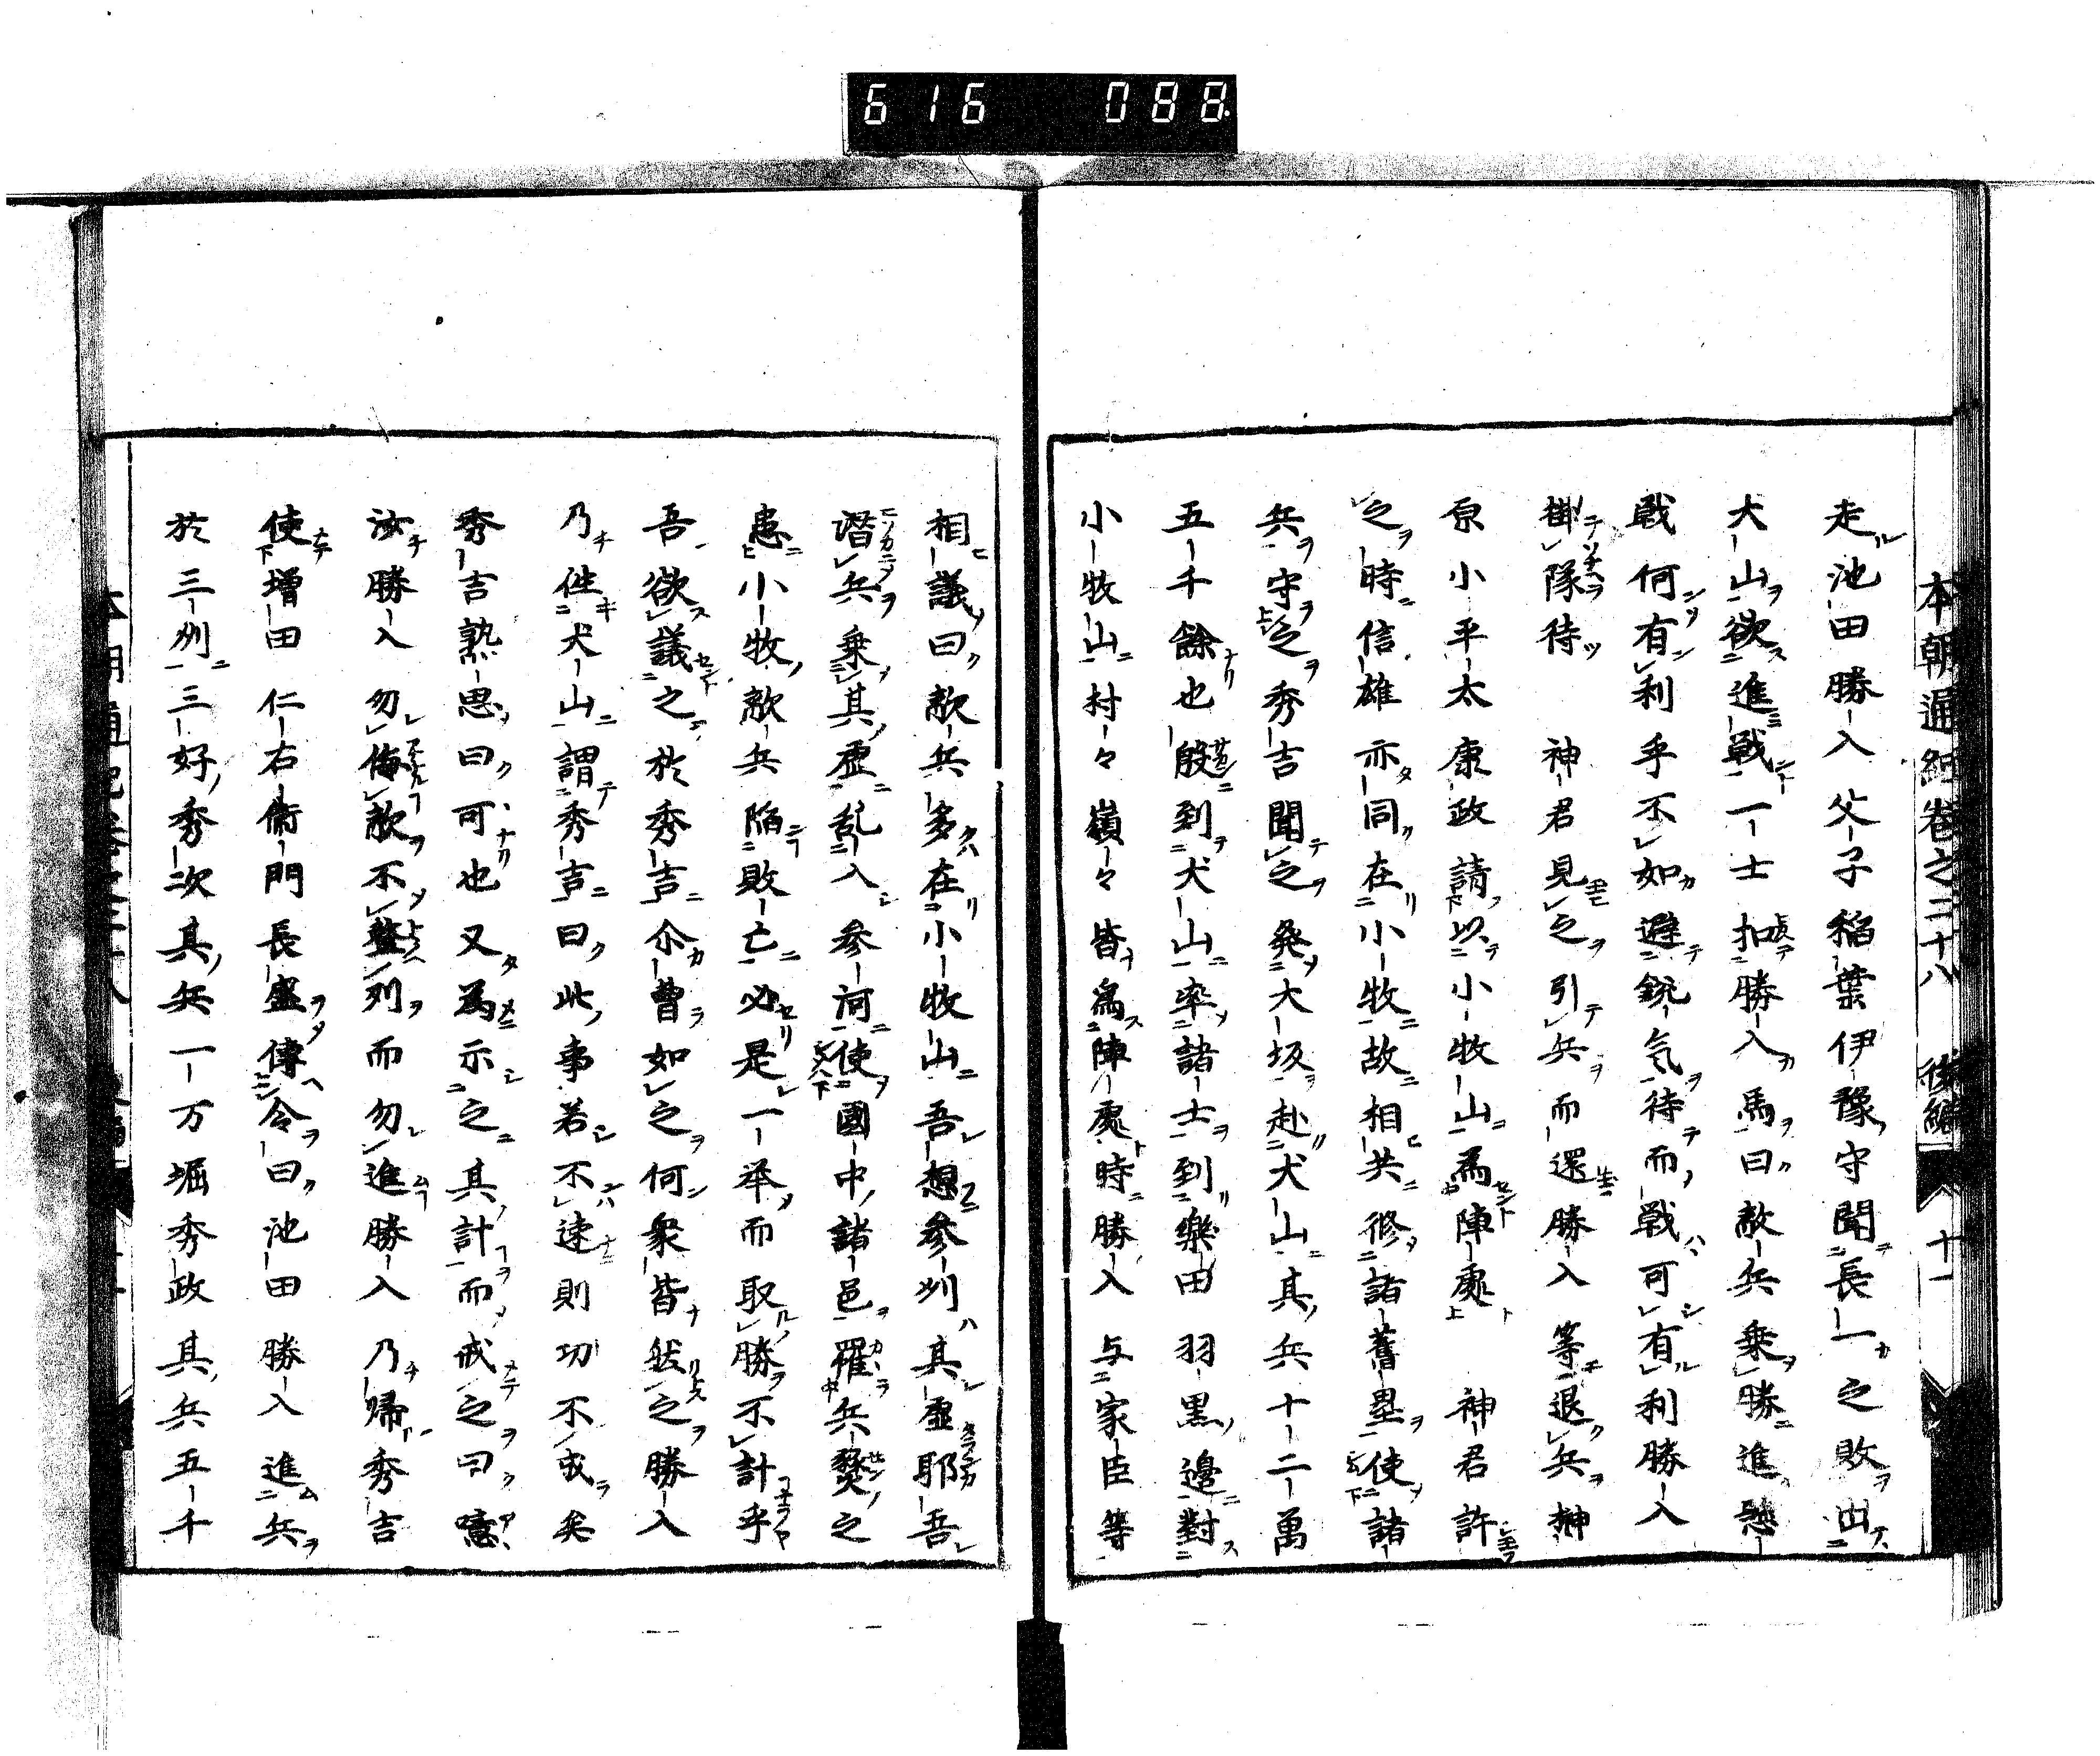 616 088
本朝通紀卷之二十八 後編 十一
走池田勝入父子稲葉伊豫守聞長一之敗出
犬山欲進戦一士扣勝入馬曰敵兵乗勝進㤀
戦何有利乎不如避鋭気待而戦可有利勝入
掛隊待 神君見之引兵而還勝入等退兵榊
原小平太康政請以小牧山為陣處 神君許
之時信雄亦同在小牧故相共修諸舊塁使諸
兵守之秀吉聞之発大坂赴犬山其兵十二萬
五千餘也殷到犬山率諸士到楽田羽黒邊對
小牧山村々嶺々皆為陣處時勝入与家臣等
相議曰敵兵多在小牧山吾想参刕其虚耶吾
潜兵乗其虚乱入参河使國中諸邑羅兵燹之
患小牧敵兵陥敗亡必是一挙而取勝不計乎
吾欲議之於秀吉尒曹如之何衆皆然之勝入
乃徃犬山謂秀吉曰此事若不速則功不成矣
秀吉熟思曰可也又為示之其計而戒之曰噫
汝勝入勿侮敵不整列而勿進勝入乃帰秀吉
使増田仁右衛門長盛傳令曰池田勝入進兵
於三刕三好秀次其兵一万堀秀政其兵五千